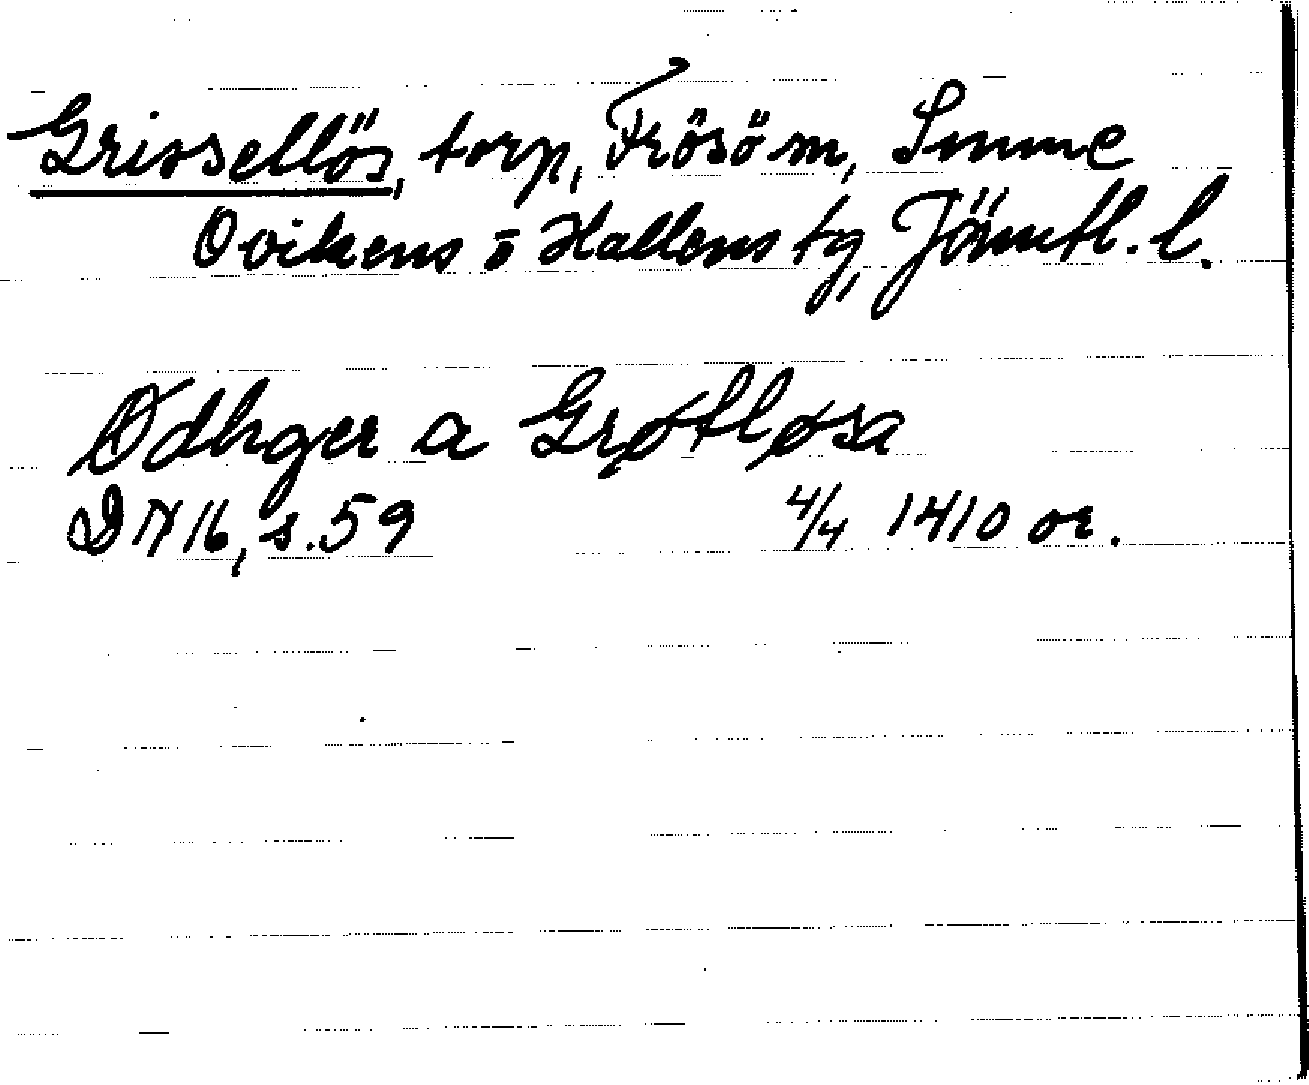 Grissellös, torp, Frösö sn, Sunne
Ovikens o Hallens tg, Jämtl. l.
Odhger a Grøtløsa
DN 16, s. 59 4/4 1410 or.